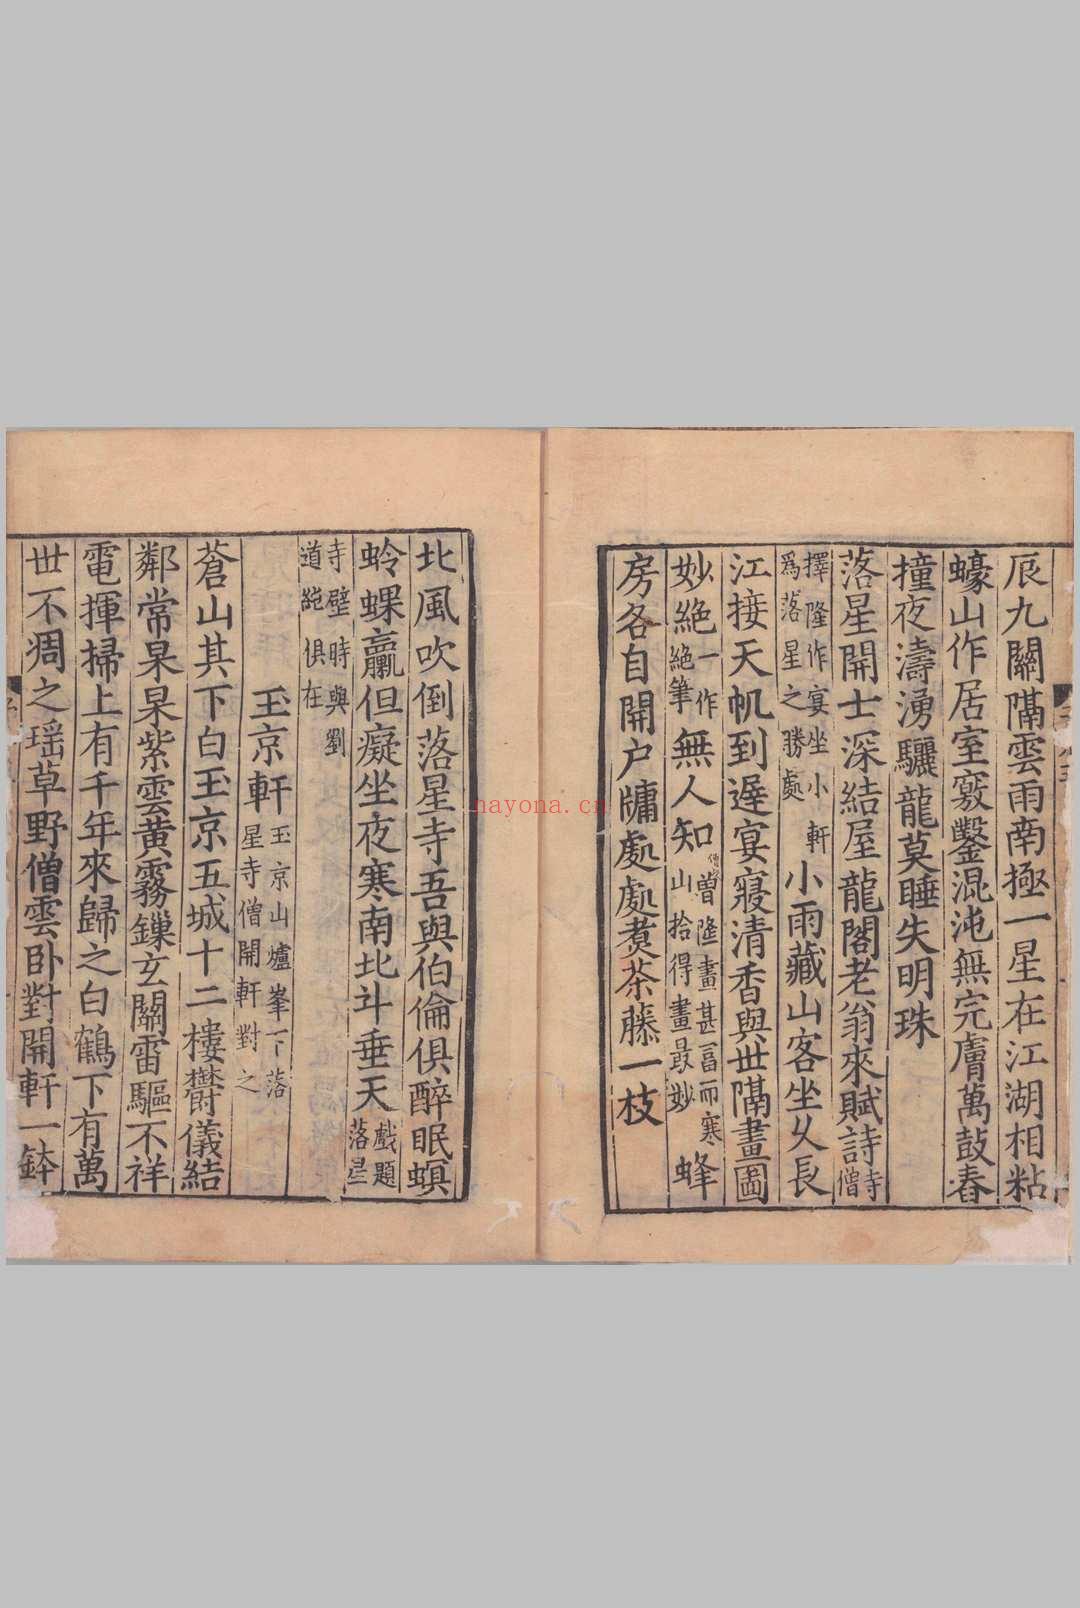 辰九關隔雲雨南極一星在江湖相粘
蠔山作居室竅鑿混沌無完膚萬鼓舂
撞夜濤湧驪龍莫睡失明珠
落星開士深結屋龍閣老翁來賦詩寺僧
擇隆作宴坐小軒爲落星之勝處小雨藏山客坐久長
江接天帆到遲宴寢清香與世隔畫圖
妙絶一作絶筆無人知僧隆畫甚富而寒山拾得畫最妙蜂
房各自開户牖處處煑茶藤一枝
北風吹倒落星寺吾與伯倫俱醉眠螟
蛉蜾蠃但癡坐夜寒南北斗垂天戲題落星
寺壁時與劉道純俱在
玉京軒玉京山爐峯下落星寺僧開軒對之
蒼山其下白玉京五城十二樓鬱儀結
鄰常杲杲紫雲黄霧鏁玄關雷驅不祥
電揮掃上有千年來歸之白鶴下有萬
世不凋之瑶草野僧雲卧對開軒一鉢
nayona.cn